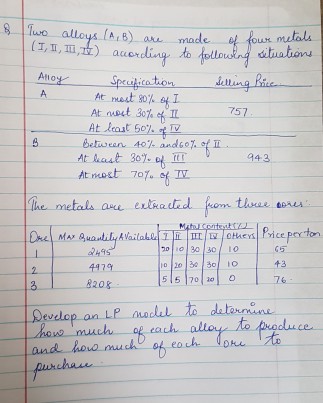 Q Two alloys (A,B) are made of four metals
(I, II, III, IV) according to following situations
Alloy Specification Selling Price
A At most 80% of I
At most 30% of II 757
At least 50% of IV
B Between 40% and 60% of II
At least 30% of III 943
At most 70% of IV
The metals are extracted from three ores:
Metal Content (%)
Ore Max Quantity Available I II III IV Others Price per ton
1 2495 20 10 30 30 10 65
2 4979 10 20 30 30 10 43
3 8208 5 5 70 20 0 76
Develop an LP model to determine
how much of each alloy to produce
and how much of each ore to
purchase.